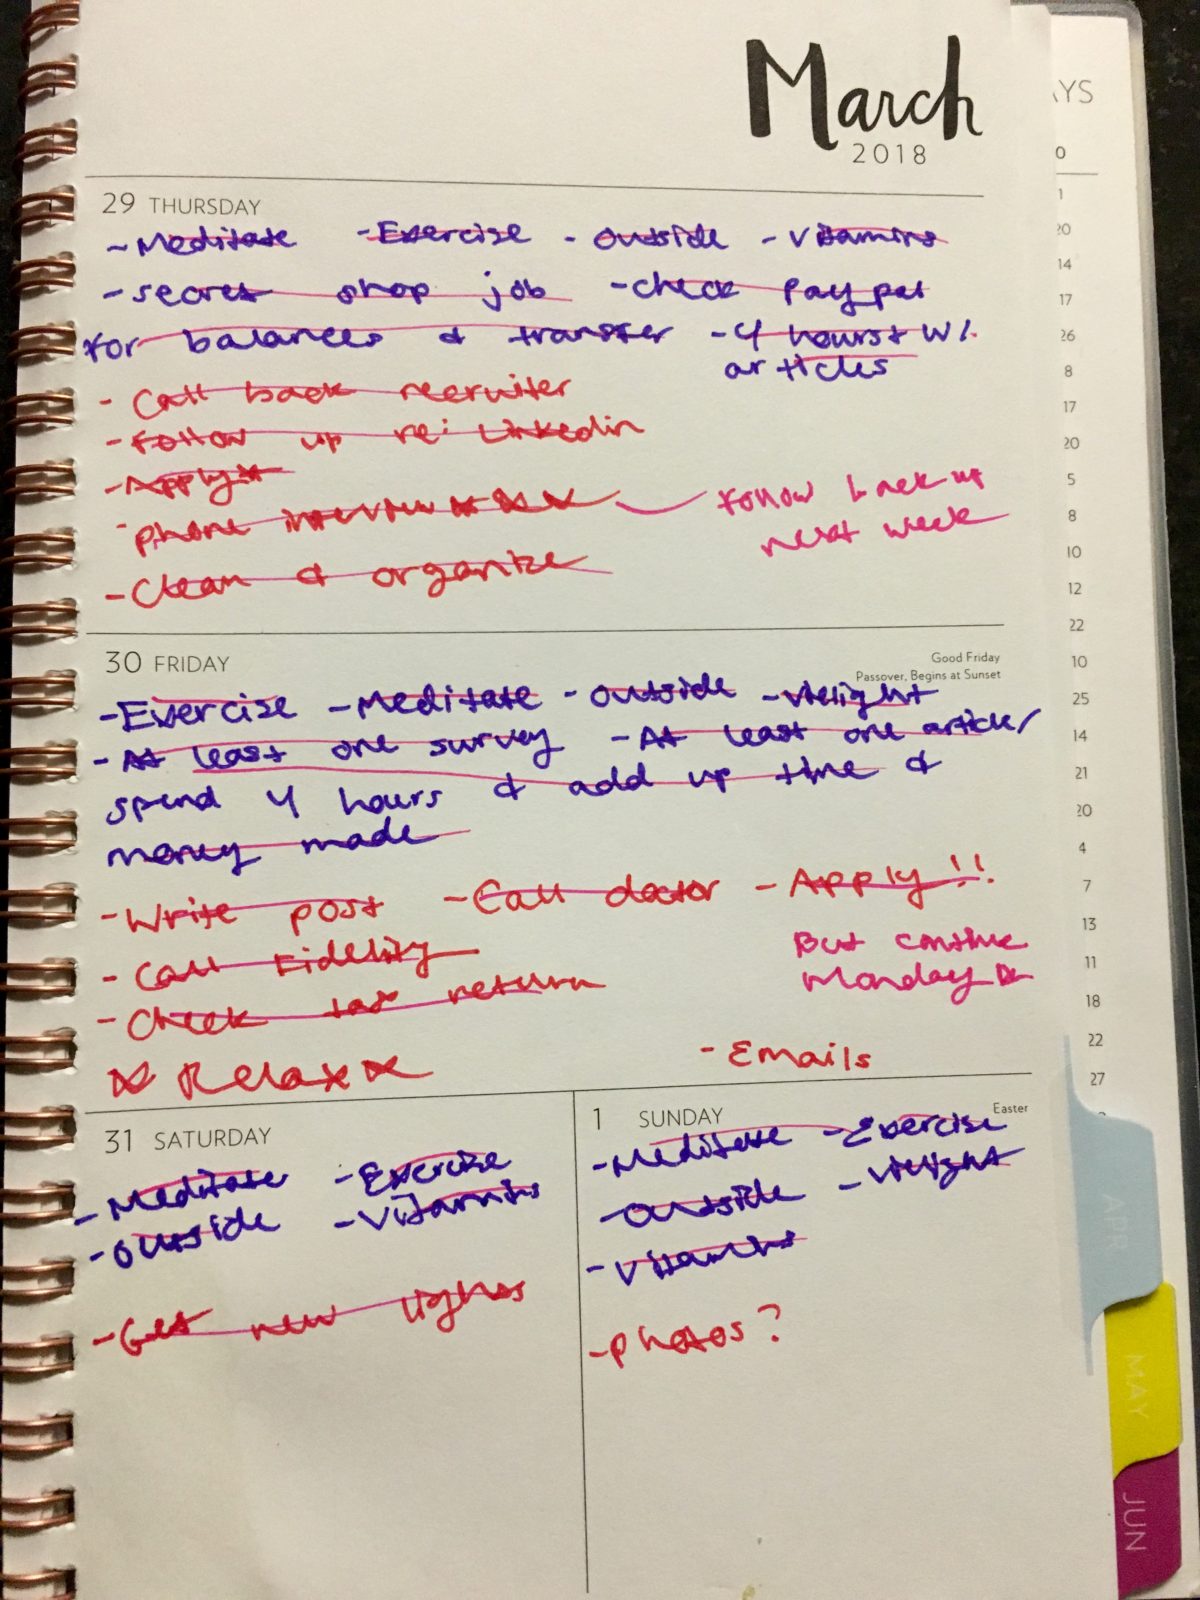 March
2018
29 THURSDAY
- Meditate - Exercise - outside - vitamins
- secret shop job - check paypal
for balances & transfer - 4 hours+ w/
articles
- Call back recruiter
- Follow up re: Linkedin
- Apply*
- phone interview * * * follow back up
next week
- Clean & organize
30 FRIDAY
Good Friday
Passover, Begins at Sunset
- Exercise - Meditate - outside - vielight
- At least one survey - At least one article/
spend 4 hours & add up time &
money made
- Write post - Call doctor - Apply!!
But continue
Monday
- Call Fidelity
- Check tax return
* Relax *
- Emails
31 SATURDAY
- Meditate - Exercise
- outside - Vitamins
- Get new lights
1 SUNDAY
Easter
- Meditate - Exercise
- outside - vielight
- Vitamins
- photos?
AYS
0
1
20
14
17
26
8
17
20
5
8
10
12
22
10
25
14
21
20
4
7
13
11
18
22
27
APR
MAY
JUN